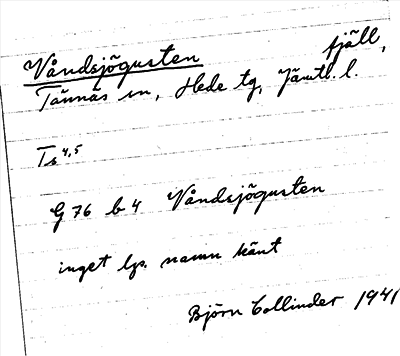 Våndsjögusten fjäll,
Tännäs sn, Hede tg, Jämtl. l.
Ts 4,5
G 76 b 4 Våndsjögusten
inget lp. namn känt
Björn Collinder 1941